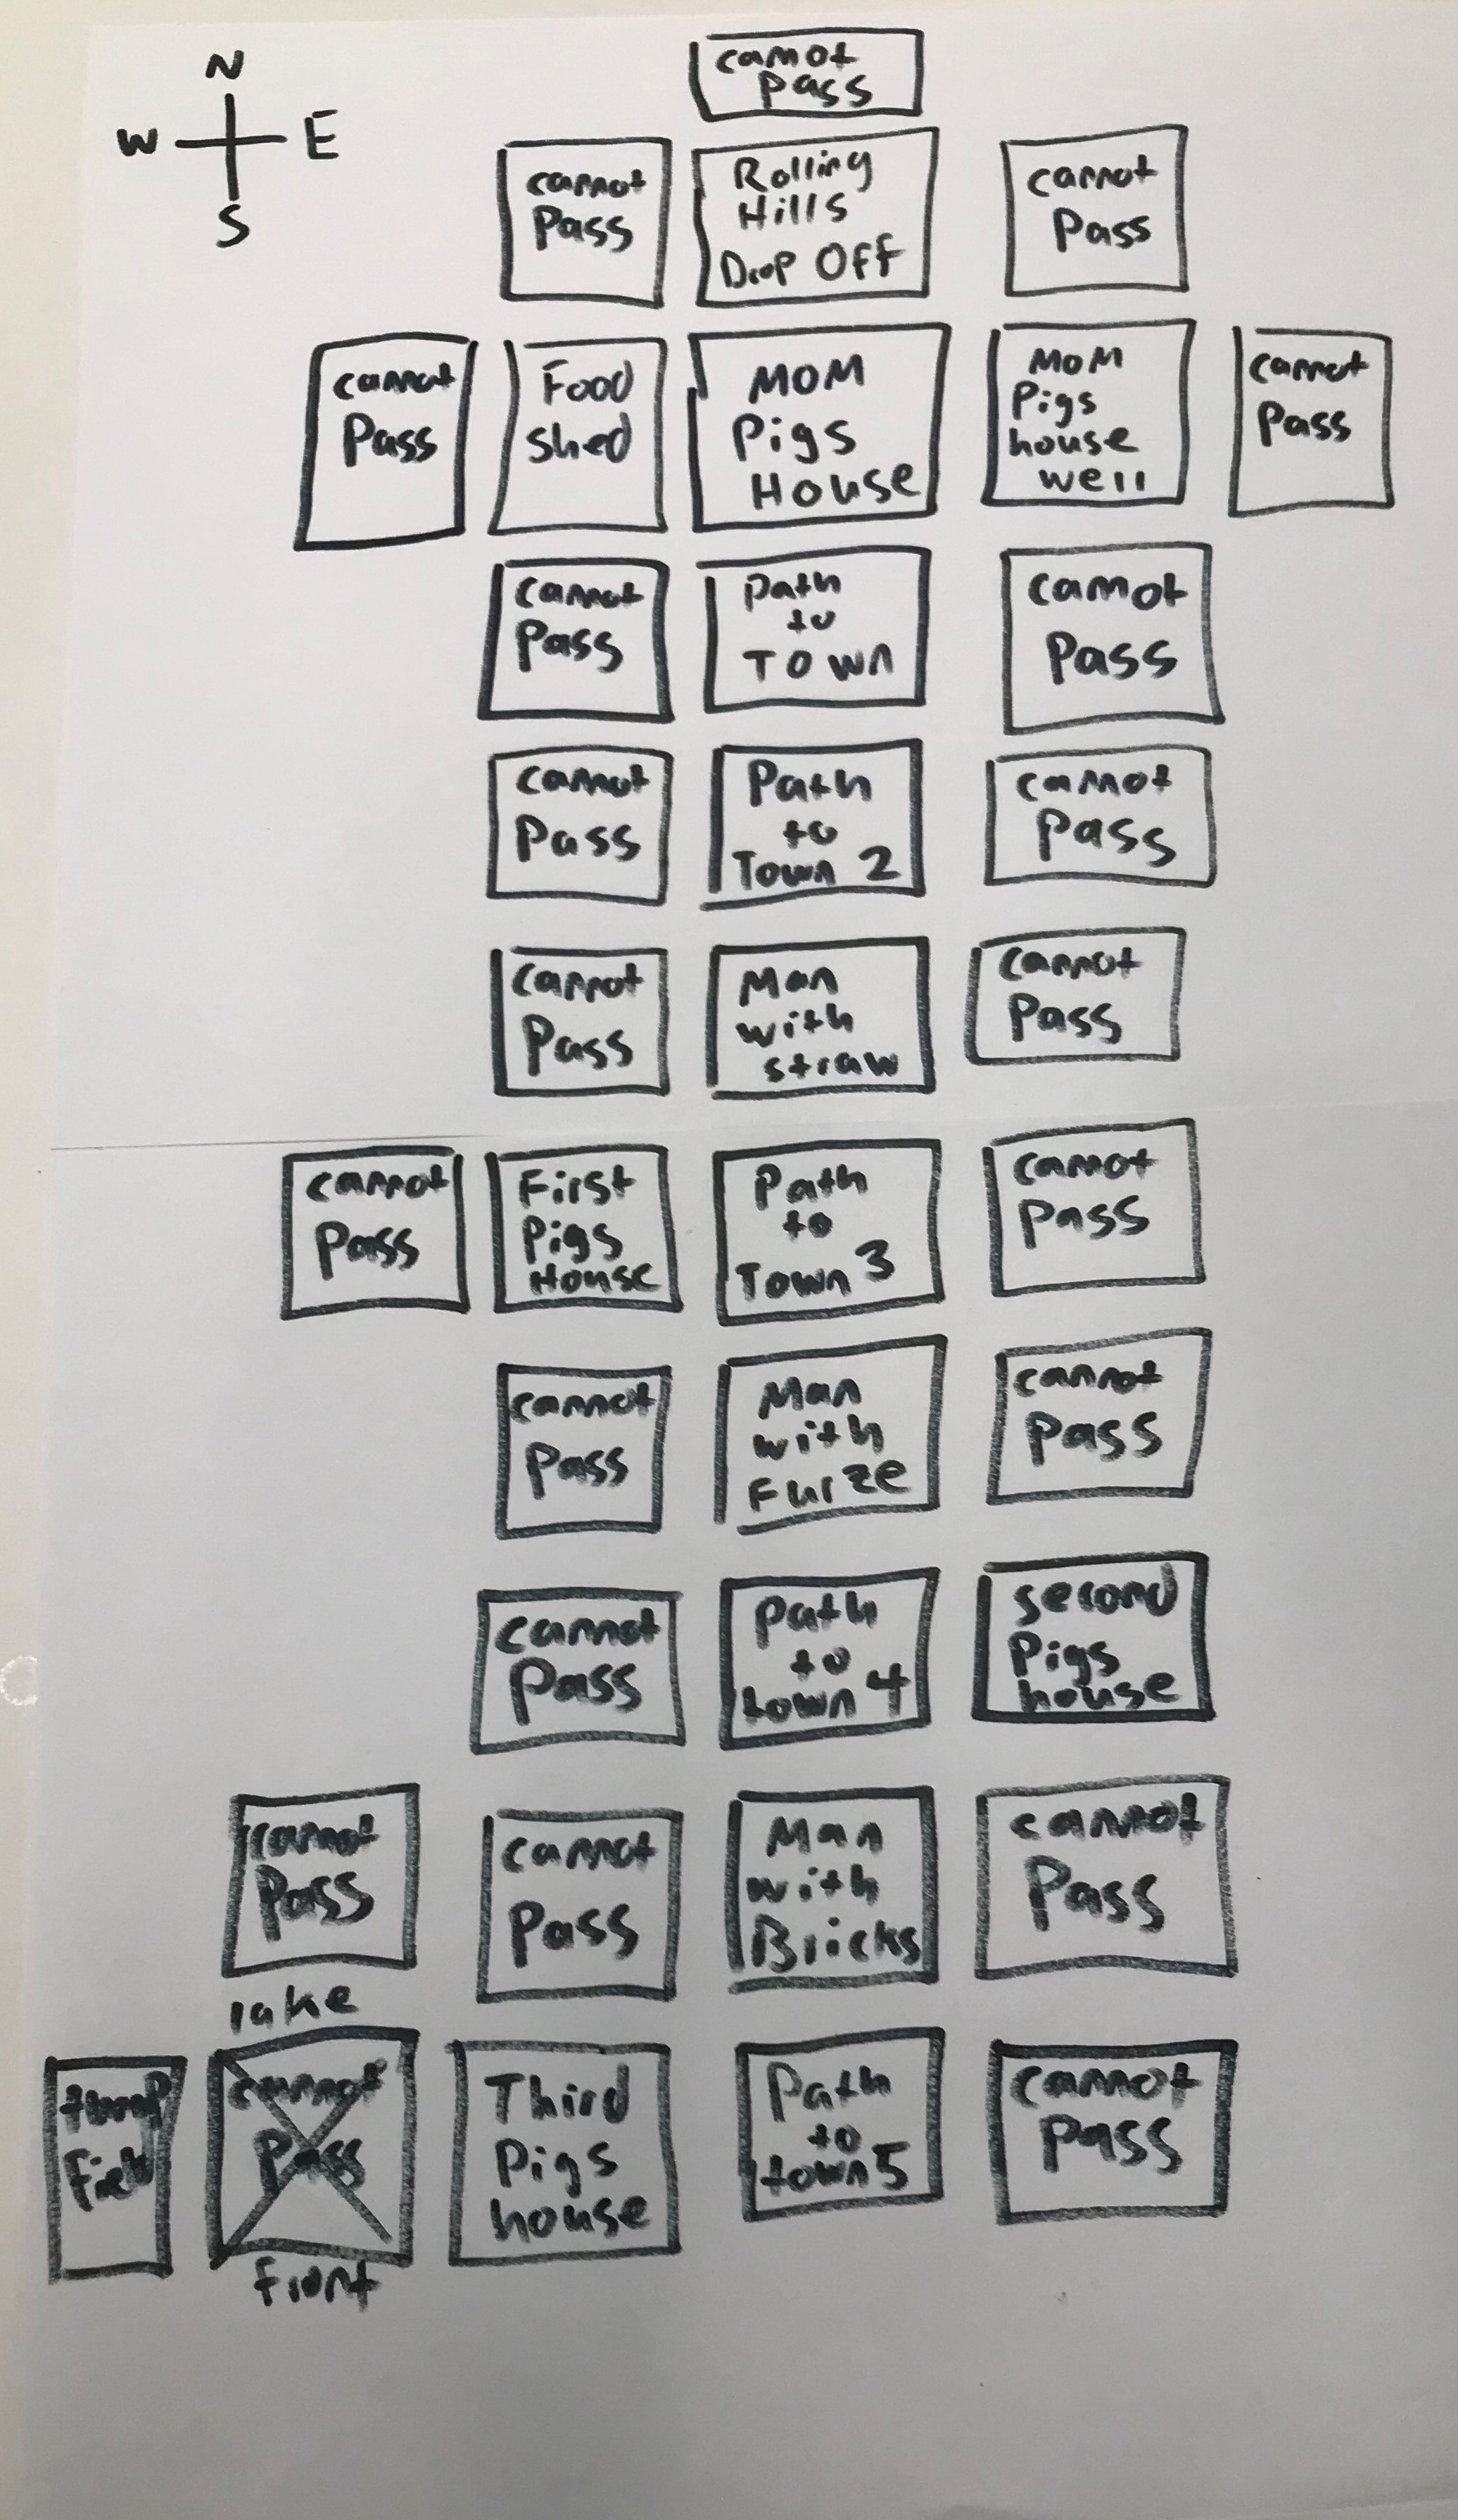 N
W E
S
cannot
Pass
cannot
Pass
Rolling
Hills
Drop Off
cannot
Pass
cannot
Pass
Food
shed
MOM
Pigs
House
MOM
Pigs
house
well
cannot
Pass
cannot
Pass
Path
to
TOWN
cannot
Pass
cannot
Pass
Path
to
Town 2
cannot
Pass
cannot
Pass
Man
with
straw
cannot
Pass
cannot
Pass
First
Pigs
House
Path
to
Town 3
cannot
Pass
cannot
Pass
Man
with
Furze
cannot
Pass
cannot
Pass
Path
to
town 4
second
Pigs
house
cannot
Pass
cannot
Pass
Man
with
Bricks
cannot
Pass
lake
Field
cannot
Pass
front
Third
Pigs
house
Path
to
town 5
cannot
Pass